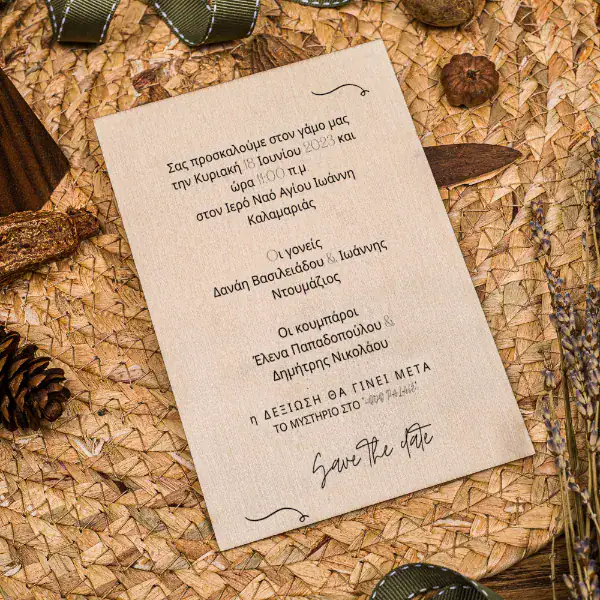 Σας προσκαλούμε στον γάμο μας
την Κυριακή 18 Ιουνίου 2023 και
ώρα 11:00 π.μ
στον Ιερό Ναό Αγίου Ιωάννη
Καλαμαριάς
Οι γονείς
Δανάη Βασιλειάδου & Ιωάννης
Ντουμάζιος
Οι κουμπάροι
Έλενα Παπαδοπούλου &
Δημήτρης Νικολάου
η ΔΕΞΙΩΣΗ ΘΑ ΓΙΝΕΙ ΜΕΤΑ
ΤΟ ΜΥΣΤΗΡΙΟ ΣΤΟ
Save the date